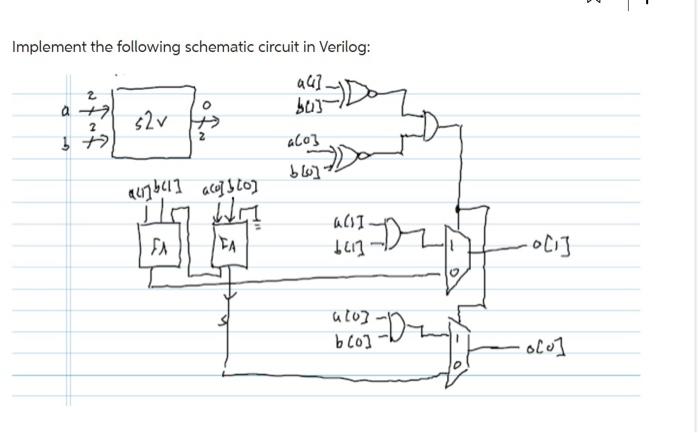 Implement the following schematic circuit in Verilog:
a[1]
b[1]
2
a
2
b
s2v
o
2
a[0]
b[0]
a[1] b[1] a[0] b[0]
1
FA
FA
a[1]
b[1]
1
0
o[1]
s
a[0]
b[0]
1
0
o[0]